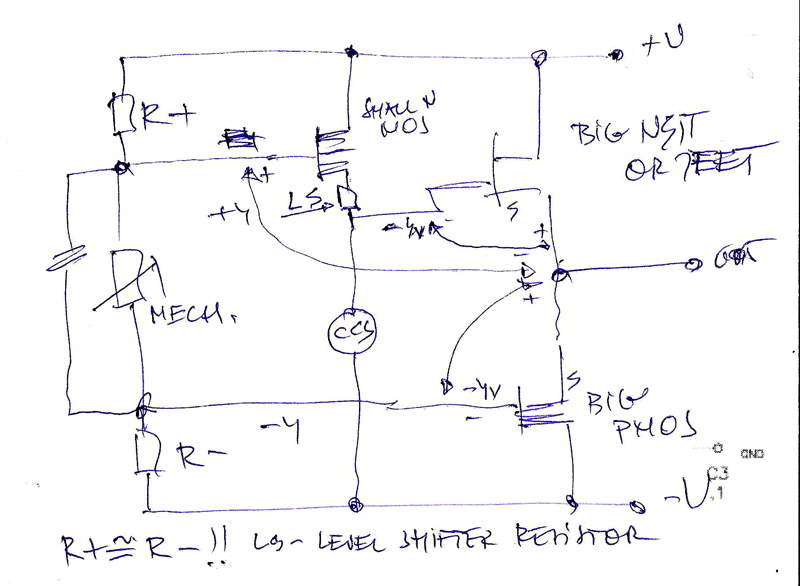 +U
R+
SMALL N
MOS
BIG NSIT
OR JFET
+
LS
+4
-4V
-
S
+
-
+
OUT
MECH.
CCS
-4V
-
S
-4
BIG
PMOS
R-
GND
C3
.1
-U
R+ ≅ R- !! LS - LEVEL SHIFTER RESISTOR